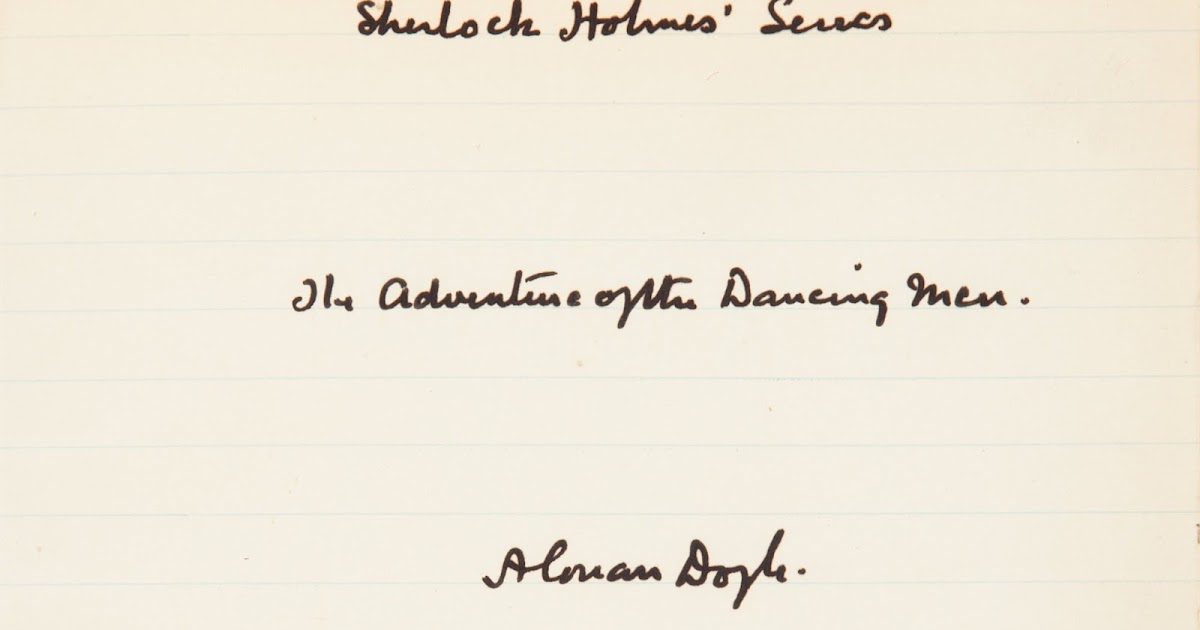 Sherlock Holmes' Series
The Adventure of the Dancing Men.
A Conan Doyle.